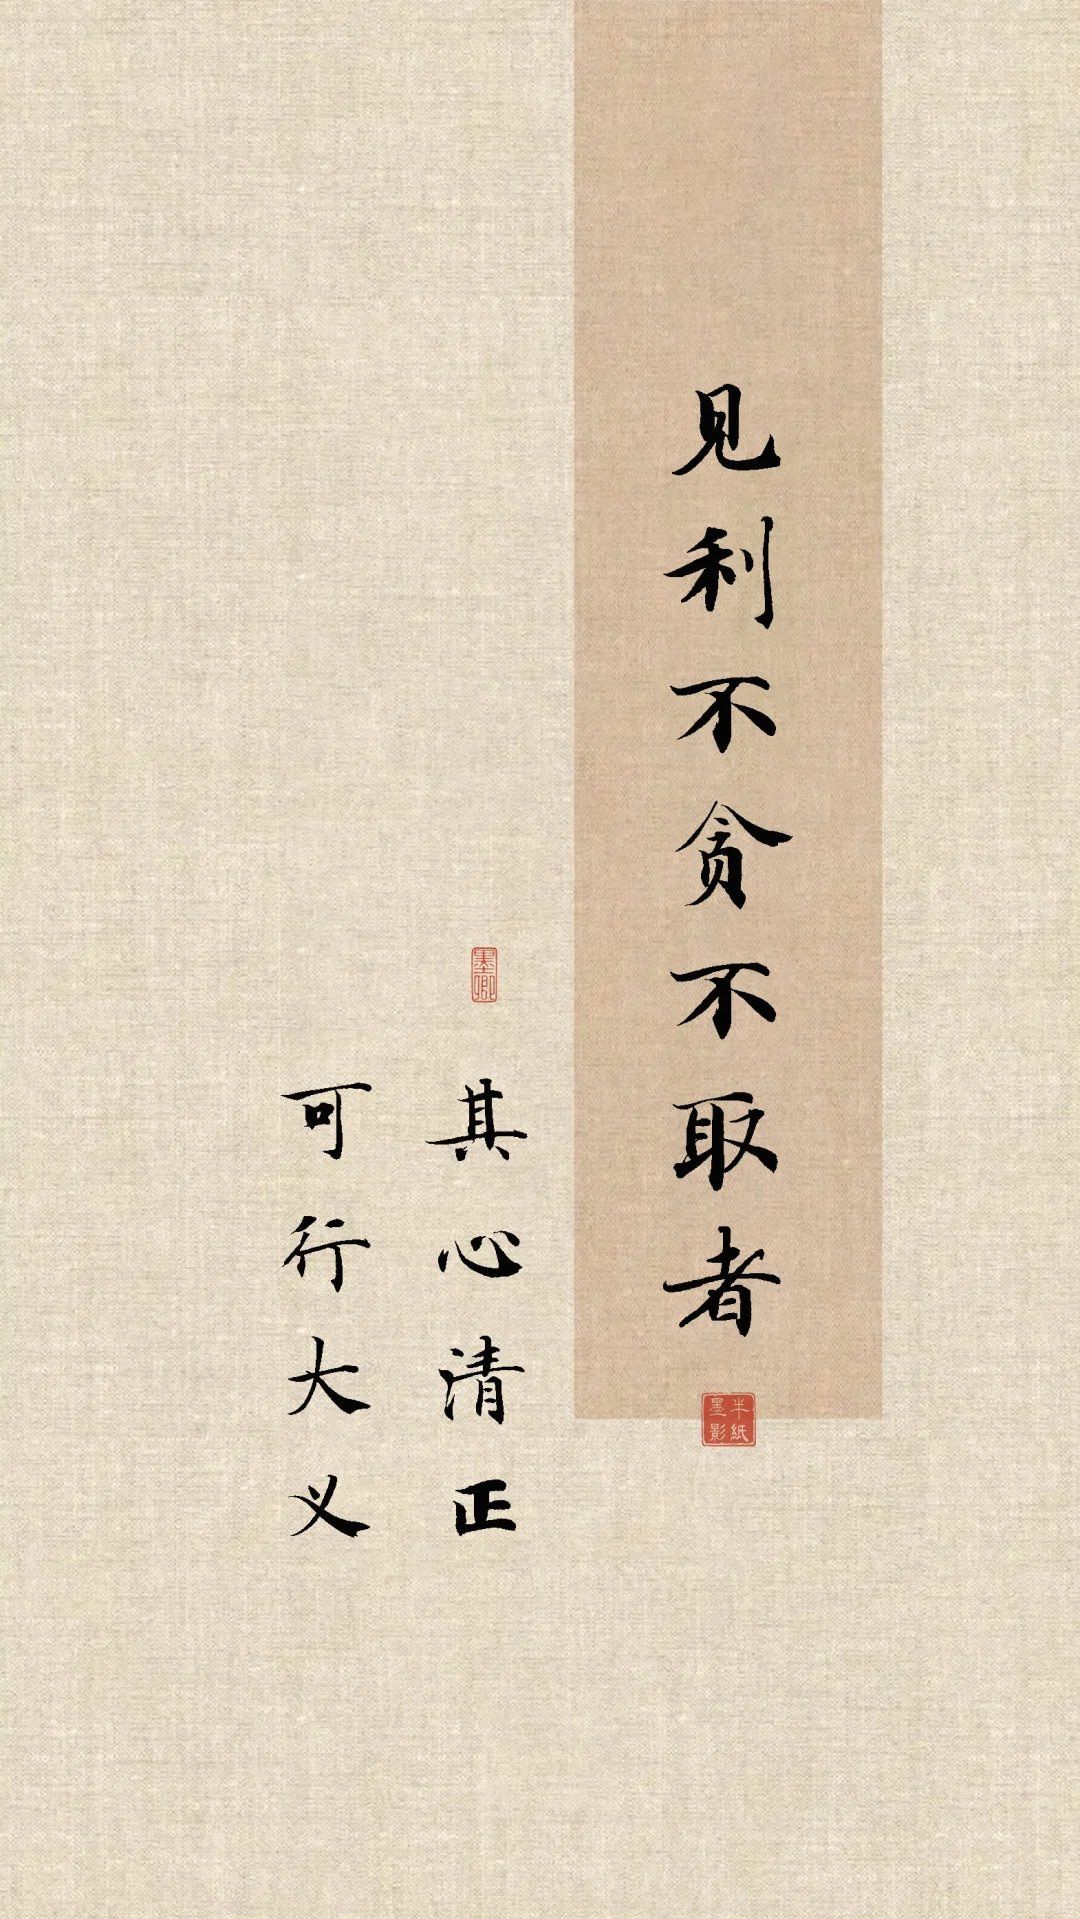 见利不贪不取者
半纸
墨影
墨卿
其心清正
可行大义